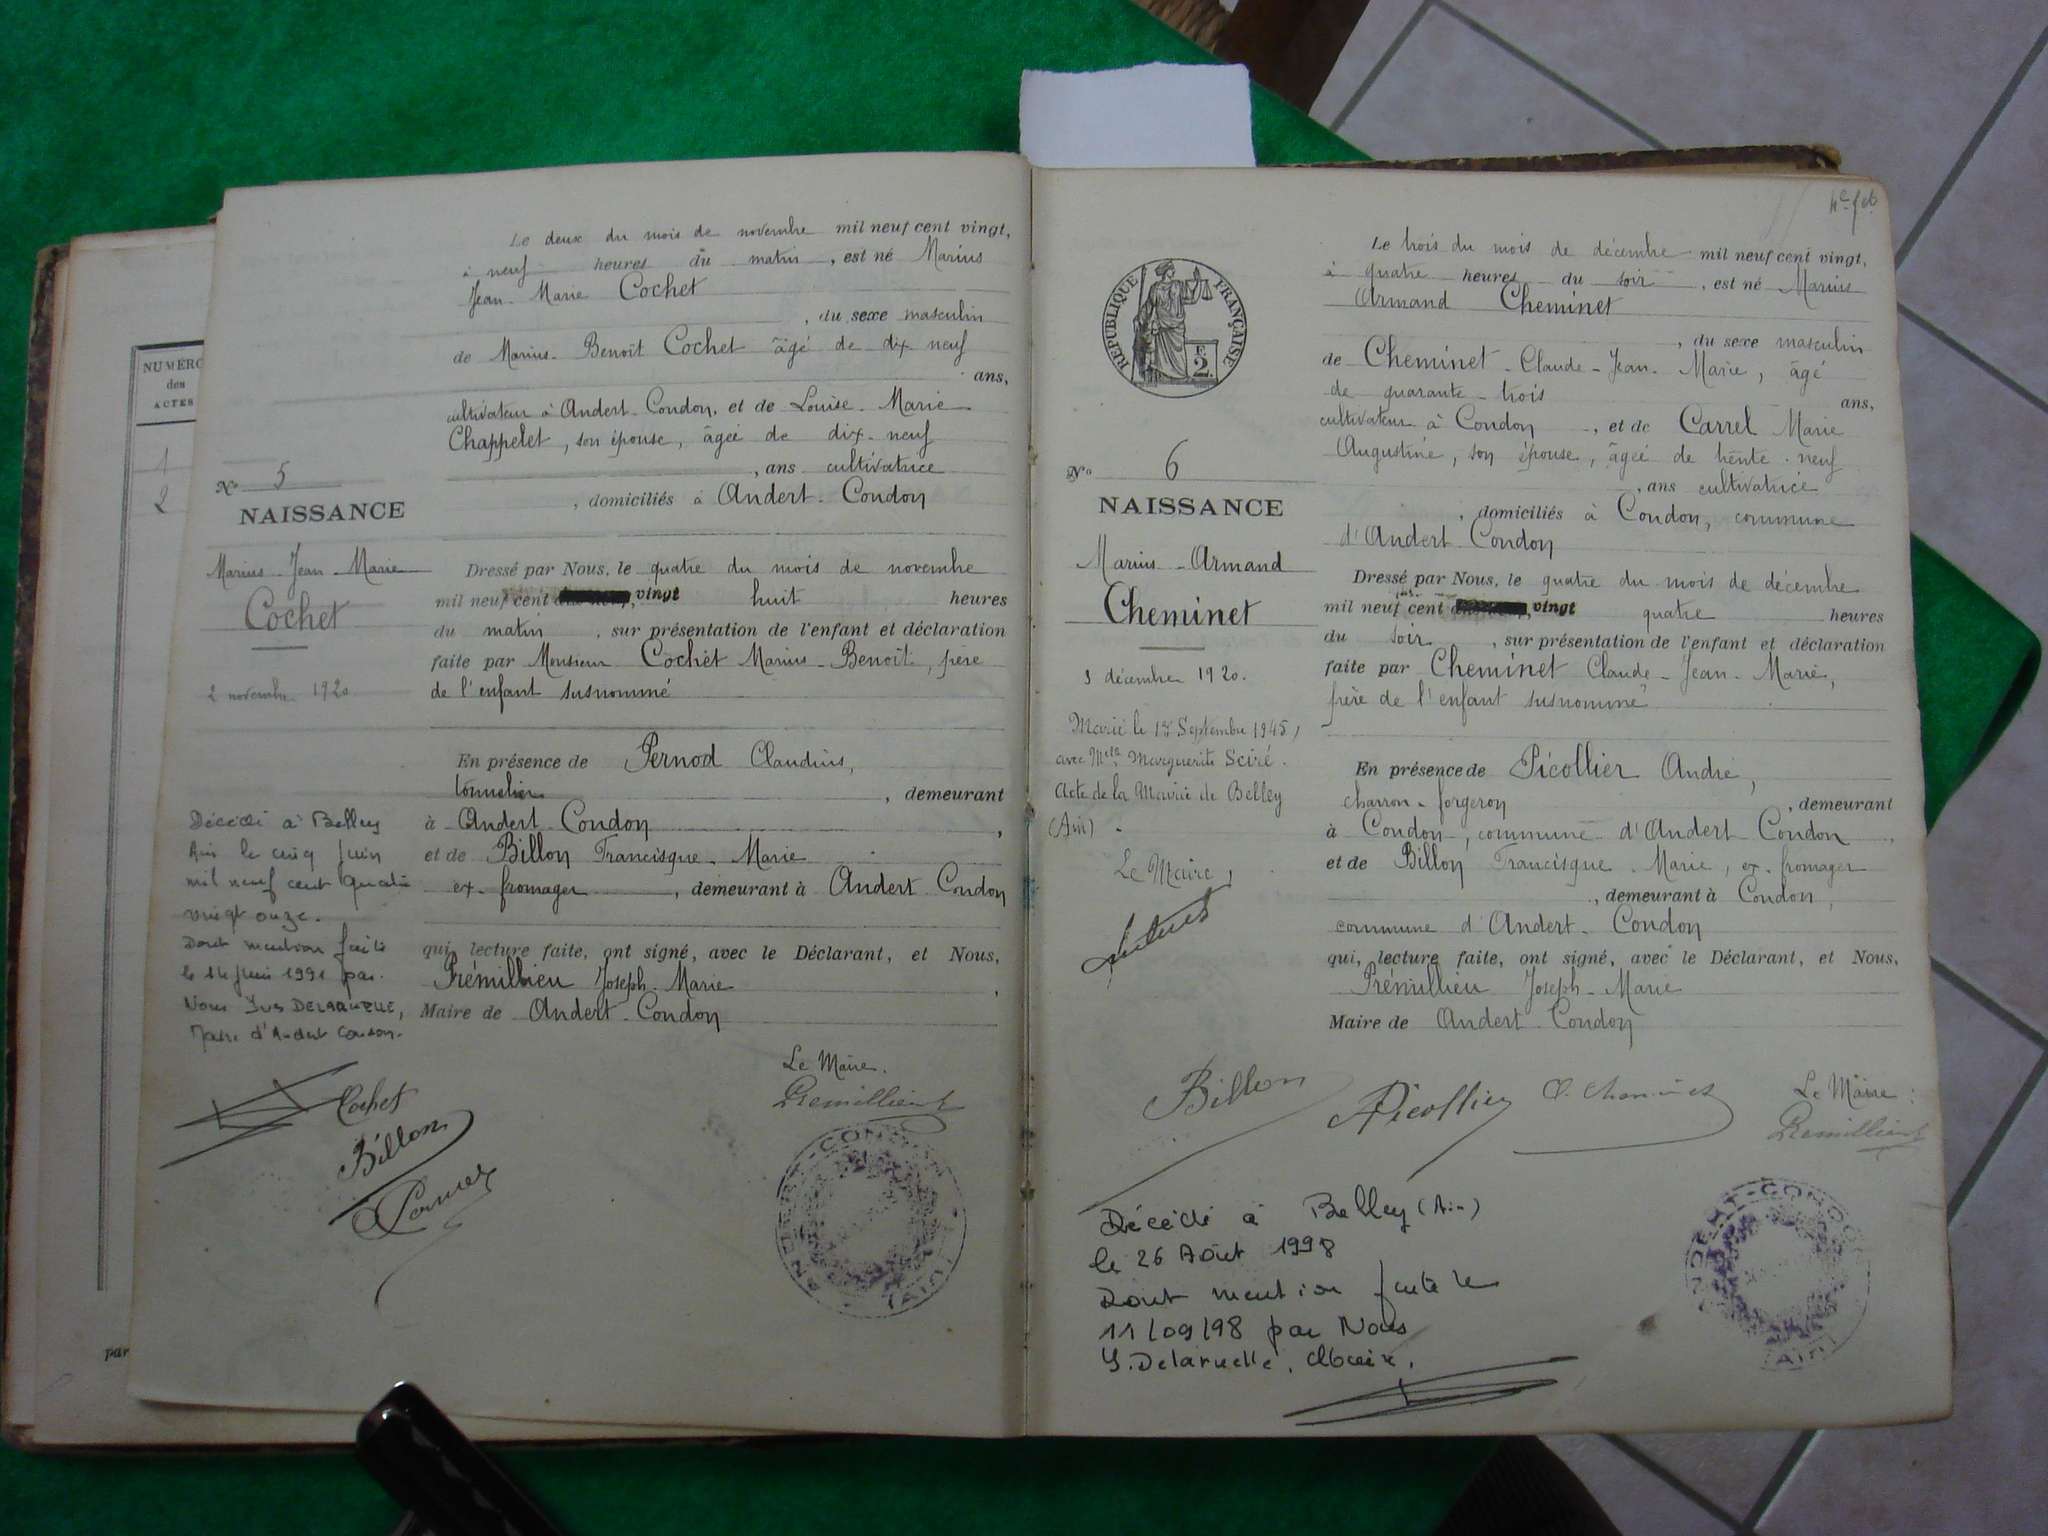 NUMÉRO
des
ACTES
1
2
par
Le deux du mois de novembre mil neuf cent vingt,
à neuf heures du matin, est né Marius
Jean-Marie Cochet
, du sexe masculin
de Marius-Benoît Cochet âgé de dix neuf
ans,
cultivateur à Andert-Condon, et de Louise-Marie
Chappelet, son épouse, âgée de dix-neuf
, ans cultivatrice
, domiciliés à Andert-Condon
No 5
NAISSANCE
Marius-Jean-Marie
Cochet
2 novembre 1920
Dressé par Nous, le quatre du mois de novembre
mil neuf cent vingt huit heures
du matin, sur présentation de l'enfant et déclaration
faite par Monsieur Cochet Marius-Benoît, père
de l'enfant susnommé
En présence de Pernod Claudius,
tonnelier, demeurant
à Andert-Condon,
et de Billon Francisque-Marie
ex-fromager, demeurant à Andert-Condon
qui, lecture faite, ont signé, avec le Déclarant, et Nous,
Prémillieu Joseph-Marie,
Maire de Andert-Condon
Décédé à Belley
Ain le cinq juin
mil neuf cent quatre
vingt onze.
Dont mention faite
le 14 juin 1991 par
Nous Yves DELARUELLE,
Maire d'Andert Condon.
Le Maire.
Prémillieu
Cochet
Billon
4e feb
RÉPUBLIQUE FRANÇAISE
F 2.
Le trois du mois de décembre mil neuf cent vingt,
à quatre heures du soir, est né Marius
Armand Cheminet
, du sexe masculin
de Cheminet-Claude-Jean-Marie, âgé
de quarante-trois
ans,
cultivateur à Condon, et de Carrel Marie
Augustine, son épouse, âgée de trente-neuf
, ans cultivatrice
, domiciliés à Condon, commune
d'Andert-Condon
No 6
NAISSANCE
Marius-Armand
Cheminet
3 décembre 1920.
Dressé par Nous, le quatre du mois de décembre
mil neuf cent vingt quatre heures
du soir, sur présentation de l'enfant et déclaration
faite par Cheminet Claude-Jean-Marie,
père de l'enfant susnommé
Marié le 1er Septembre 1945,
avec Melle Marguerite Sciré.
Acte de la Mairie de Belley
(Ain).
Le Maire,
En présence de Picollier André,
charron-forgeron, demeurant
à Condon, commune d'Andert-Condon,
et de Billon Francisque-Marie, ex-fromager
, demeurant à Condon,
commune d'Andert-Condon
qui, lecture faite, ont signé, avec le Déclarant, et Nous,
Prémillieu Joseph-Marie
Maire de Andert-Condon
Billon
Picollier
Cheminet
Le Maire:
Prémillieu
Décédé à Belley (Ain)
le 26 Août 1998
Dont mention faite le
11/09/98 par Nous
Y. Delaruelle, Maire,
ANDERT-CONDON (AIN)